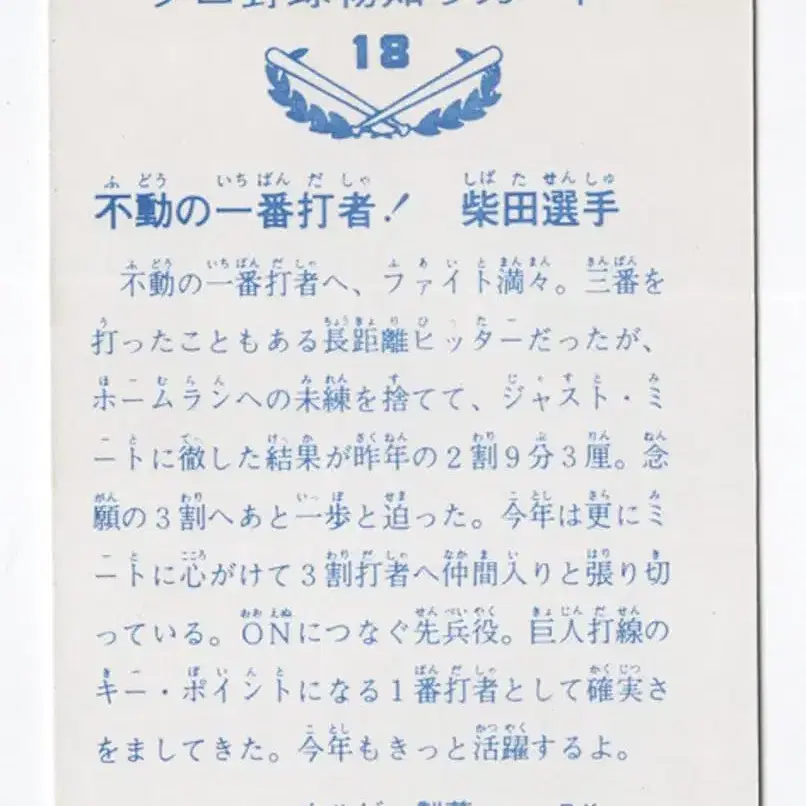 プロ野球物知りカード
18
不動の一番打者! 柴田選手
不動の一番打者へ、ファイト満々。三番を
打ったこともある長距離ヒッターだったが、
ホームランへの未練を捨てて、ジャスト・ミ
ートに徹した結果が昨年の2割9分3厘。念
願の3割へあと一歩と迫った。今年は更にミ
ートに心がけて3割打者へ仲間入りと張り切
っている。ONにつなぐ先兵役。巨人打線の
キー・ポイントになる1番打者として確実さ
をましてきた。今年もきっと活躍するよ。